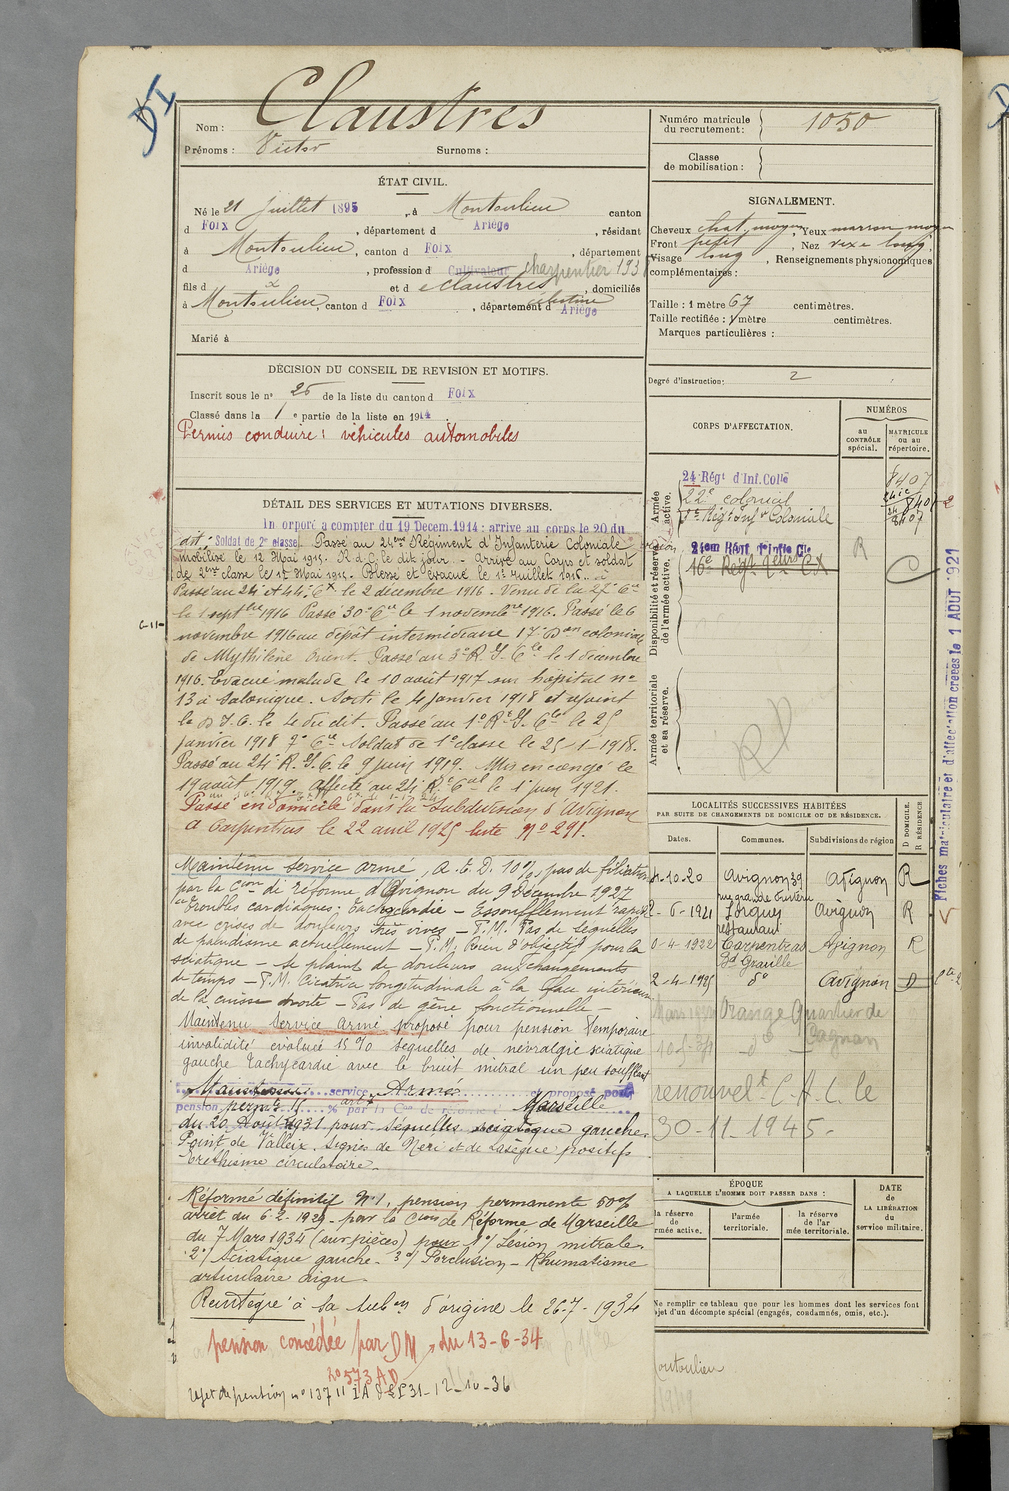 DI
Nom : Claustres
Prénoms : Victor Surnoms :
ÉTAT CIVIL.
Né le 21 juillet 1895, à Montoulieu canton
d Foix, département d Ariège, résidant
à Montoulieu, canton d Foix, département
d Ariège, profession d Cultivateur charpentier 193
fils d x et d e Claustres célestine, domiciliés
à Montoulieu, canton d Foix, département d Ariège
Marié à
DÉCISION DU CONSEIL DE REVISION ET MOTIFS.
Inscrit sous le n° 25 de la liste du canton d Foix
Classé dans la 1 e partie de la liste en 1914
Permis conduire : véhicules automobiles
DÉTAIL DES SERVICES ET MUTATIONS DIVERSES.
In orporé a compter du 19 Decem.1914 : arrive au corps le 20 du
dit : Soldat de 2e classe. Passé au 24eme Régiment d'Infanterie Coloniale
mobilisé le 12 Mai 1915. R d C le dit jour. - Arrivé au Corps et soldat
de 2eme classe le 12 Mai 1915. Blessé et évacué le 1er Juillet 1916.
Passé au 24 et 44 le 2 decembre 1916. Venu de la 27e Cie
le 1 septbre 1916 Passé 30e Cie le 1 novembre 1916. Passé le 6
novembre 1916 au dépôt intermédiaire 17e Don colonial
de Mythilène Orient. Passé au 3e R. I. Cle le 1 décembre
1916. Evacué malade le 10 août 1917 sur hôpital n°
13 à Salonique. Sorti le 4 janvier 1918 et rejoint
le D. I. C. le 4 du dit. Passé au 1er R. I. Cle le 25
janvier 1918 7e Cie Soldat de 1e classe le 25-1-1918.
Passé au 24e R. I. C. le 9 juin 1919. Mis en congé le
19 août 1919. Affecté au 24e R. I. Cal le 1 juin 1921.
Passé en domicile dans la Subdivision d'Avignon
à Carpentras le 22 avril 1925 liste N° 291.
Maintenu service armé, A. E. D. 10%, pas de filiation
par la Con de réforme d'Avignon du 9 Décembre 1927
"Troubles cardiaques : Tachycardie - Essoufflement rapide
avec crises de douleurs très vives - P.M. Pas de séquelles
de paludisme actuellement - P.M. Rien d'objectif pour la
sciatique - se plaint de douleurs aux changements
de temps - P.M. Cicatrice longitudinale à la face intérieure
de la cuisse droite - Pas de gêne fonctionnelle -
Maintenu Service armé proposé pour pension temporaire
invalidité évaluée 15 % séquelles de névralgie sciatique
gauche Tachycardie avec le bruit mitral un peu soufflant
Maintenu service Armé et proposé pour
pension perm % par la Con de réforme Marseille
du 20 Août 1931 pour séquelles sciatique gauche.
Point de Valleix. Signes de Neri et de Lasègue positifs
Eréthisme circulatoire.
Réformé définitif N°1, pension permanente 50%
arrêt du 6-2-1929 - par la Cion de Réforme de Marseille
du 7 Mars 1934 (sur pièces) pour 1°/ Lésion mitrale.
2°/ Sciatique gauche - 3°/ Forclusion - Rhumatisme
articulaire aigu.
Réintégré à sa subon d'origine le 26-7-1934
pension concédée par DM du 13-6-34
n° 573 AD
rejet de pension n° 13711 31-12-10-36
Numéro matricule
du recrutement : 1050
Classe
de mobilisation :
SIGNALEMENT.
Cheveux chat. moyen, Yeux marron moyen
Front petit, Nez vexe long,
Visage long, Renseignements physionomiques
complémentaires :
Taille : 1 mètre 67 centimètres.
Taille rectifiée : 1 mètre centimètres.
Marques particulières :
Degré d'instruction : 2
CORPS D'AFFECTATION.
NUMÉROS
au CONTRÔLE spécial.
MATRICULE ou au répertoire.
Armée active.
24 Régt d'Inf. Colle 8407
22e colonial
1er Rég. d'inf. Coloniale 8407
Disponibilité et réserve de l'armée active.
24em Régt. d'Infie Cle R
Armée territoriale et sa réserve.
Fiches matriculaire et d'affectation créées le 1 AOUT 1921
LOCALITÉS SUCCESSIVES HABITÉES
PAR SUITE DE CHANGEMENTS DE DOMICILE OU DE RÉSIDENCE.
D DOMICILE. R RÉSIDENCE
Dates. Communes. Subdivisions de région
-10-20 Avignon 39 Avignon R
2-6-1921 Sorgues Avignon R
restaurant
0-4-1922 Carpentras Avignon R
Bd Graville
2-4-1925 d° Avignon D
Mars Orange Quartier de
Gagnan
d°
renouvelt C.A.C. le
30-11-1945-
ÉPOQUE
A LAQUELLE L'HOMME DOIT PASSER DANS :
la réserve de
rmée active.
l'armée
territoriale.
la réserve
de l'ar
mée territoriale.
DATE
de
LA LIBÉRATION
du
service militaire.
Ne remplir ce tableau que pour les hommes dont les services font
jet d'un décompte spécial (engagés, condamnés, omis, etc.).
ontoulieu
1919